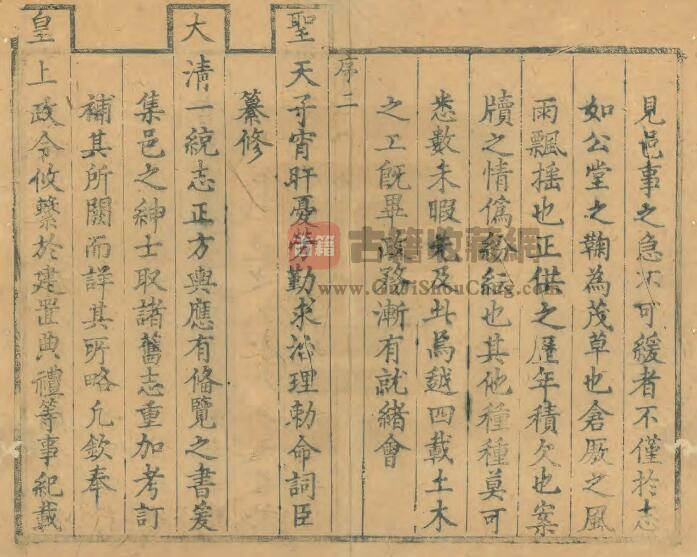 見邑事之急不可緩者不僅於志
如公堂之鞠為茂草也倉廒之風
雨飄搖也正供之歷年積欠也案
牘之情偽紛紜也其他種種莫可
悉數未暇先及此焉越四載土木
之工旣畢政務漸有就緒會
序二
聖天子宵旰憂勞勤求治理勅命詞臣
纂修
大清一統志正方輿應有備覽之書爰
集邑之紳士取諸舊志重加考訂
補其所闕而詳其所略凡欽奉
皇上政令攸繫於建置典禮等事紀載
古籍 古籍收藏網
www.GuJiShouCang.com